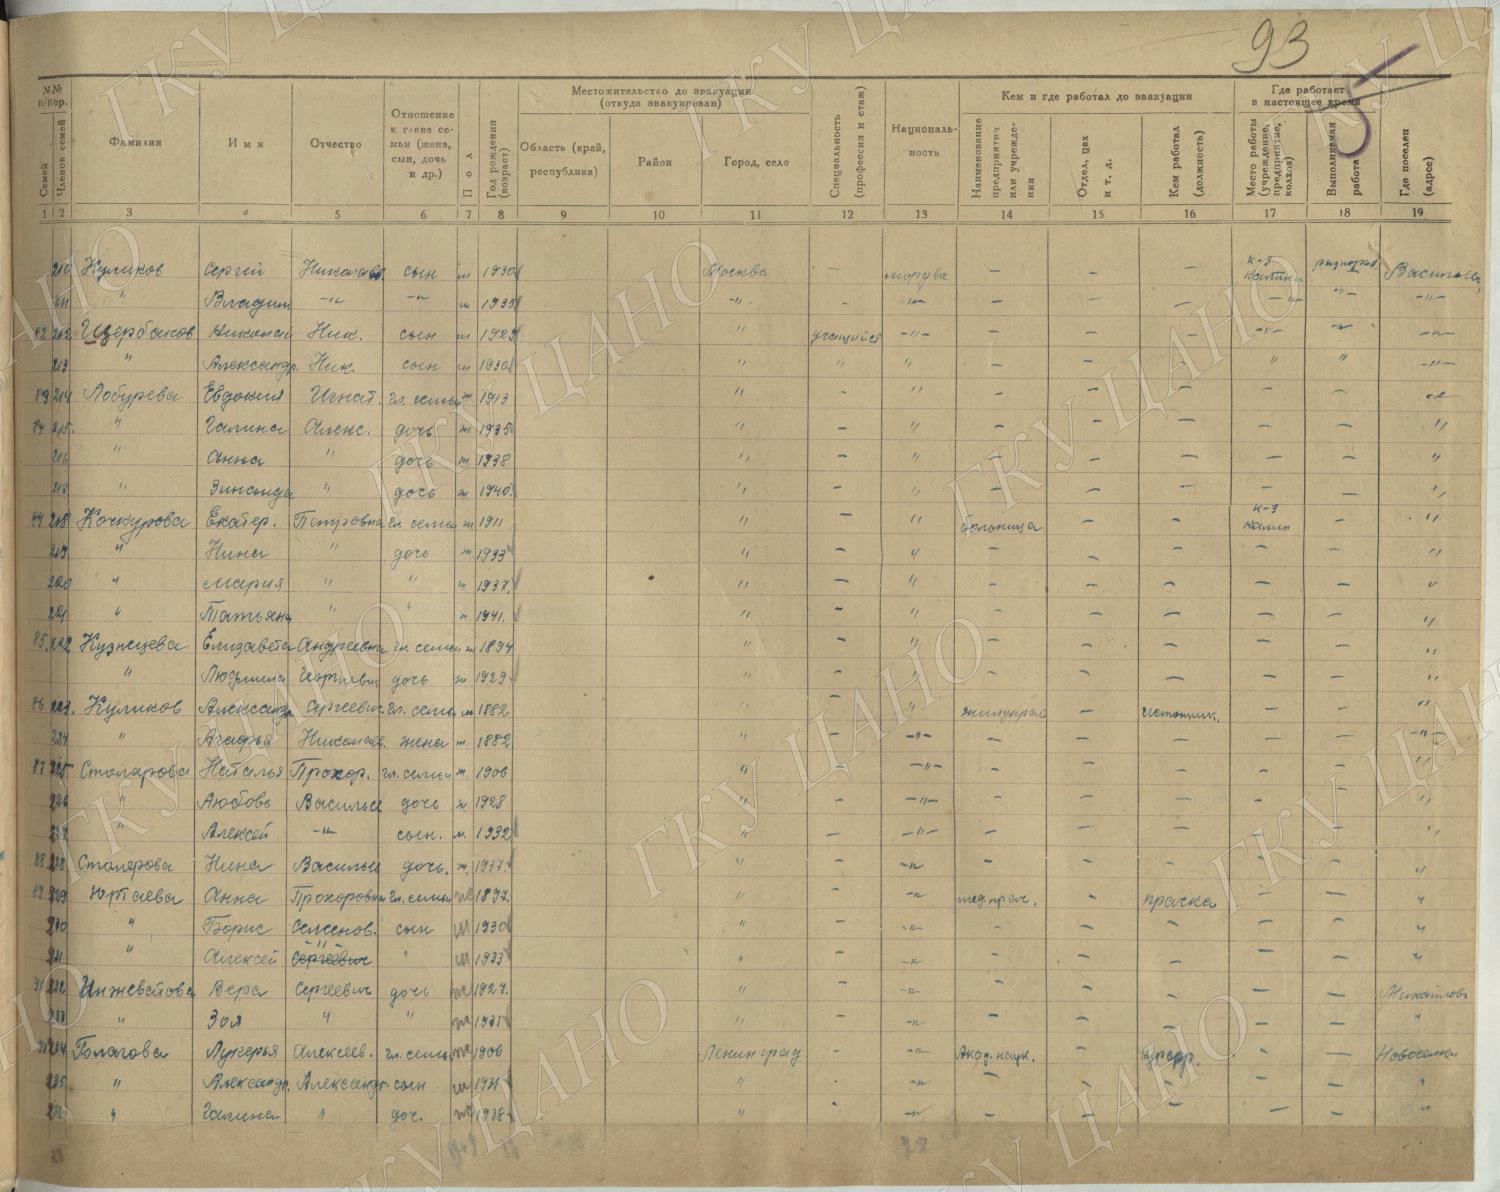 93
№№ п/пор.
Семей
Членов семей
Фамилия
Имя
Отчество
Отношение к главе семьи (жена, сын, дочь и др.)
Пол
Год рождения (возраст)
Местожительство до эвакуации (откуда эвакуирован)
Область (край, республика)
Район
Город, село
Специальность (профессия и стаж)
Национальность
Кем и где работал до эвакуации
Наименование предприятия или учреждения
Отдел, цех и т. д.
Кем работал (должность)
Где работает в настоящее время
Место работы (учреждение, предприятие, колхоз)
Выполняемая работа
Где поселен (адрес)
1 2 3 4 5 6 7 8 9 10 11 12 13 14 15 16 17 18 19
210 Куликов Сергей сын м 1930 Москва — — — — к-з
211 " Владим —"— —"— м 1935 —"— — —"— — — — —"— —"— —"—
82 212 Щербаков Николай Ник. сын м 1929 " учащийся —"— — — — —"— —"— —"—
213 " Александр. Ник. сын м 1930 " " " — — — " " —"—
83 214 Лобурева Евдокия Игнат. гл. семьи ж 1913 " — " — — — — — —"—
84 215. " Галина Алекс. дочь ж 1935 " — " — — — — — "
216 " Анна " дочь ж 1938 " — " — — — — — "
217 " Зинаида " дочь ж 1940. " — " — — — — — "
84 218 Кочкурова Екатер. Петровна гл. семьи ж 1911 " — " больница — — к-з Калин — "
219 " Нина " дочь ж 1933 " — " — — — — — "
220 " Мария " " ж 1937. " — " — — — — — "
221 " Татьяна " " ж 1941. " — " — — — — — "
85. 222 Кузнецева Елизавета Андреевна гл. семьи ж 1894 " — " — — — — — "
" Людмила Георгиевн дочь ж 1929 " — " — — — — — "
86 223. Куликов Александр. Сергеевич гл. семьи м 1882 " — " — истопник. — — "
224 " Агафья Николаев. жена ж 1882 " — —"— — — — — — —"—
87 225 Столярова Наталья Прохор. гл. семьи ж 1906 " — —"— — — — — — "
226 " Любовь Васильев дочь ж 1928 " — —"— — — — — — "
227 " Алексей —"— сын. м. 1932 " — —"— — — — — — "
88 228 Столерова Нина Васильев дочь. ж. 1937. " — —"— — — — — — "
89 229 Юртаева Анна Прохоровна гл. семьи ж 1897. " — —"— — прачка — — "
230 " Борис Семенов. сын м 1930 " — —"— — — — — — "
231 " Алексей Сергеевич " м 1933 " — —"— — — — — — "
232 Инжеватова Вера Сергеевич дочь ж 1927. " — —"— — — — — —
233 " Зоя " " ж 1931 " — —"— — — — — — "
234 Голагова Лукерья Алексеев. гл. семьи ж 1906 Ленинград — —"— Акад. наук. — — —
235 " Александр. Александр. сын м 1931 " — —"— — — — — — "
236 " Галина " доч. ж 1938 " — —"— — — — — — "
ГКУ ЦАНО